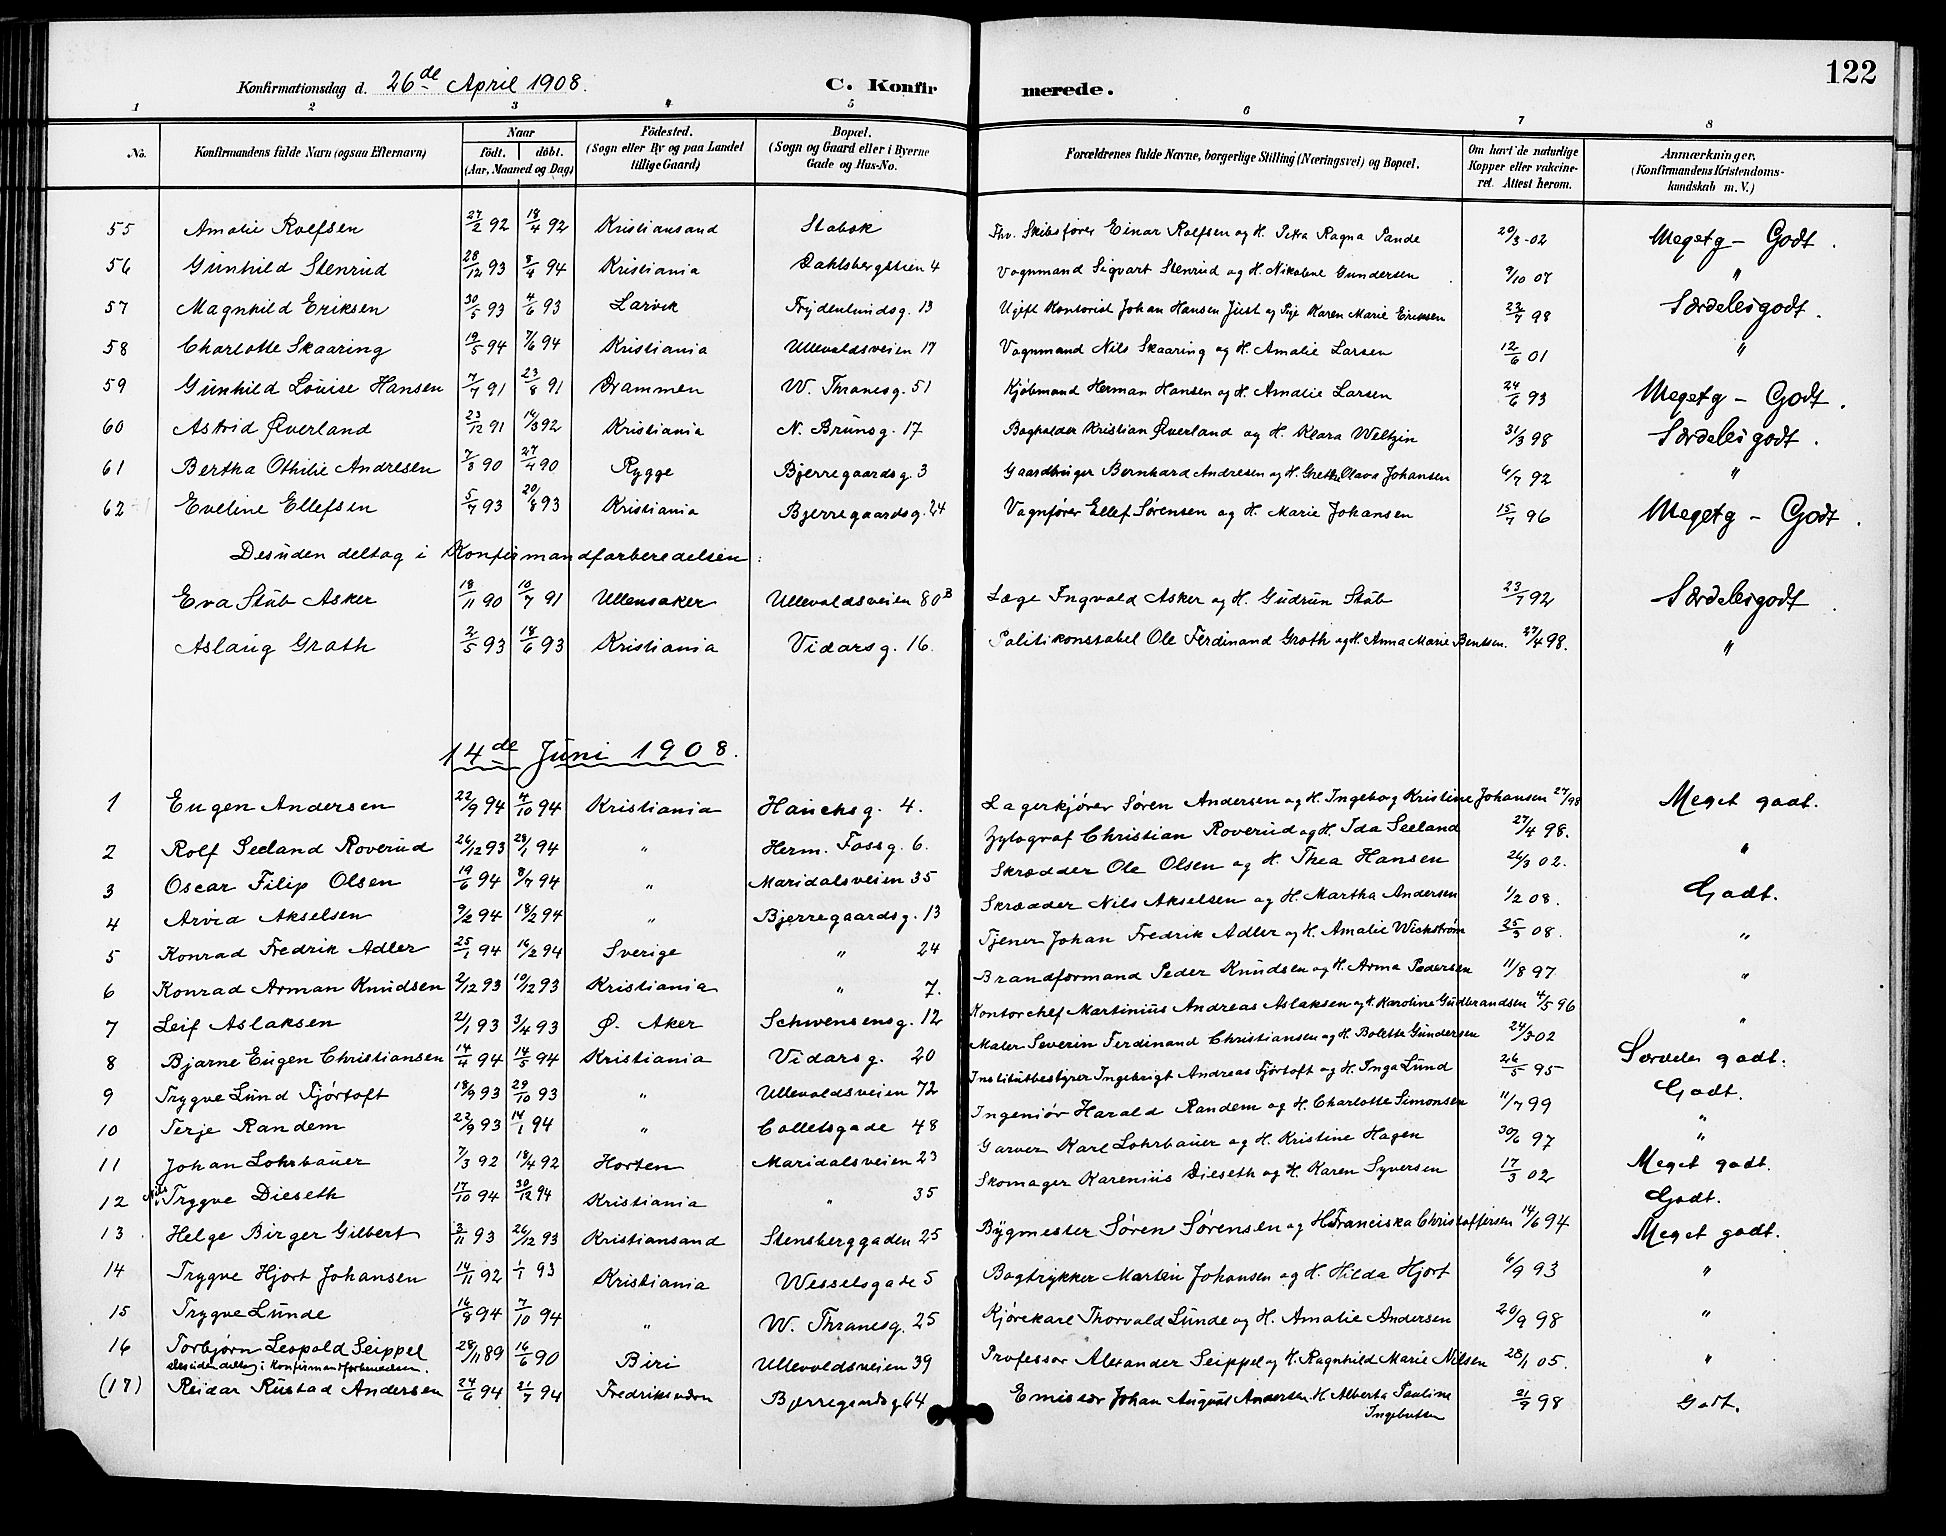 122
Konfirmationsdag d. 26de April 1908. C. Konfirmerede.
1 2 3 4 5 6 7 8
No. Konfirmandens fulde Navn (ogsaa Efternavn) Naar født. døbt. (Aar, Maaned og Dag) Fødested. (Sogn eller By og paa Landet tillige Gaard) Bopæl. (Sogn og Gaard eller i Byerne Gade og Hus-No. Forældrenes fulde Navne, borgerlige Stilling (Næringsvei) og Bopæl. Om havt de naturlige Kopper eller vakcineret. Attest herom. Anmærkninger. (Konfirmandens Kristendomskundskab m. V.)
55 Amalie Rolfsen 27/2 92 18/4 92 Kristiansand Stabæk Fhv. Skibsfører Einar Rolfsen og H. Petra Ragna Pande 20/3-02 Megetg - Godt.
56 Gunhild Stenrud 28/12 93 8/4 94 Kristiania Dahlsbergstien 4 Vognmand Sigvart Stenrud og H. Nikoline Gundersen 9/10 07 "
57 Magnhild Eriksen 30/5 93 4/6 93 Larvik Frydenlundsg. 13 Ugift Kontorist Johan Hansen Just og Pige Karen Marie Eriksen 22/7 98 Særdelesgodt.
58 Charlotte Skaaring 19/5 94 7/6 94 Kristiania Ullevoldsveien 17 Vognmand Nils Skaaring og H. Amalie Larsen 12/6 01 "
59 Gunhild Louise Hansen 7/7 91 23/8 91 Drammen W. Thranesg. 51 Kjøbmand Herman Hansen og H. Amalie Larsen 24/6 93 Megetg - Godt.
60 Astrid Øverland 23/12 91 14/3 92 Kristiania N. Brunsg. 17 Bogholder Kristian Øverland og H. Klara Weltzin 31/3 98 Særdelesgodt.
61 Bertha Othilie Andresen 7/3 90 27/4 90 Rygge Bjerregaardsg. 3 Gaardbruger Bernhard Andresen og H. Grethe Olava Johansen 6/7 92 "
62 Eveline Ellefsen 5/7 93 20/8 93 Kristiania Bjerregaardsg. 24 Vognfører Ellef Sørensen og H. Marie Johansen 15/7 96 Megetg - Godt.
Desuden deltog i Konfirmandforberedelsen:
Eva Stub Asker 18/11 90 10/7 91 Ullensaker Ullevoldsveien 80B Læge Ingvald Asker og H. Gudrun Stub 23/7 92 Særdelesgodt.
Aslaug Groth 2/5 93 18/6 93 Kristiania Vidarsg. 16. Politikonstabel Ole Ferdinand Groth og H. Anna Marie Bentsen. 27/4 98. "
14de Juni 1908.
1 Eugen Andersen 22/9 94 4/10 94 Kristiania Hauchsg. 4. Lagerkjører Søren Andersen og H. Ingeborg Kristine Johansen 27/98 Meget godt.
2 Rolf Seeland Roverud 26/12 93 28/1 94 " Herm. Fossg. 6. Zylograf Christian Roverud og H. Ida Seeland 27/4 98. "
3 Oscar Filip Olsen 19/6 94 8/7 94 " Maridalsveien 35 Skrædder Ole Olsen og H. Thea Hansen 26/3 02. Godt.
4 Arvid Akselsen 9/2 94 18/2 94 " Bjerregaardsg. 13 Skrædder Nils Akselsen og H. Martha Andersen 1/2 08.
5 Konrad Fredrik Adler 25/1 94 16/2 94 Sverige " 24 Tjener Johan Fredrik Adler og H. Amalie Wickstrøm 25/3 08. "
6 Konrad Arman Knudsen 2/12 93 19/12 93 Kristiania " 7. Brandformand Peder Knudsen og H. Arma Pedersen 11/8 97 "
7 Leif Aslaksen 21/1 93 3/4 93 Ø. Aker Schwensensg. 12 Kontorchef Martinius Andreas Aslaksen og H. Karoline Gudbrandsen 4/5 96 "
8 Bjarne Eugen Christiansen 14/4 94 14/5 94 Kristiania Vidarsg. 20 Maler Severin Ferdinand Christiansen og H. Bolette Gundersen 24/3 02 Særdeles godt.
9 Trygve Lund Fjørtoft 18/9 93 29/10 93 " Ullevoldsveien 72 Institutbestyrer Ingebrigt Andreas Fjørtoft og H. Inga Lund 26/5 95 Godt.
10 Terje Randem 22/9 93 14/1 94 " Colletsgade 48 Ingeniør Harald Randem og H. Charlotte Simonsen 11/7 99 "
11 Johan Lohrbauer 7/3 92 18/4 92 Horten Maridalsveien 23 Garver Karl Lohrbauer og H. Kristine Hagen 30/6 97 "
12 Nils Trygve Dieseth 17/10 94 30/12 94 Kristiania " 35 Skomager Karenius Dieseth og H. Karen Syversen 17/3 02 Meget godt.
13 Helge Birger Gilbert 3/11 93 26/12 93 Kristiansand Stensberggaden 25 Bygmester Søren Sørensen og H. Franciska Christoffersen 14/6 94 Godt.
14 Trygve Hjort Johansen 14/11 92 1/1 93 Kristiania Wesselsgade 5 Bogtrykker Martin Johansen og H. Hilda Hjort 6/9 93 Meget godt. "
15 Trygve Lunde 16/8 94 7/10 94 " W. Thranesg. 25 Kjørekarl Thorvald Lunde og H. Amalie Andersen 20/9 98 "
16 Torbjørn Leopold Seippel 28/11 89 16/6 90 Biri Ullevoldsveien 39 Professor Alexander Seippel og H. Ragnhild Marie Nilsen 28/1 05. "
desuden deltog i Konfirmandforberedelsen.
(17) Reidar Rustad Andersen 24/6 94 21/7 94 Fredriksværn Bjerregaardsg 64 Emissær Johan August Andersen H. Alberta Pauline Ingebretsen 21/9 98 Godt.